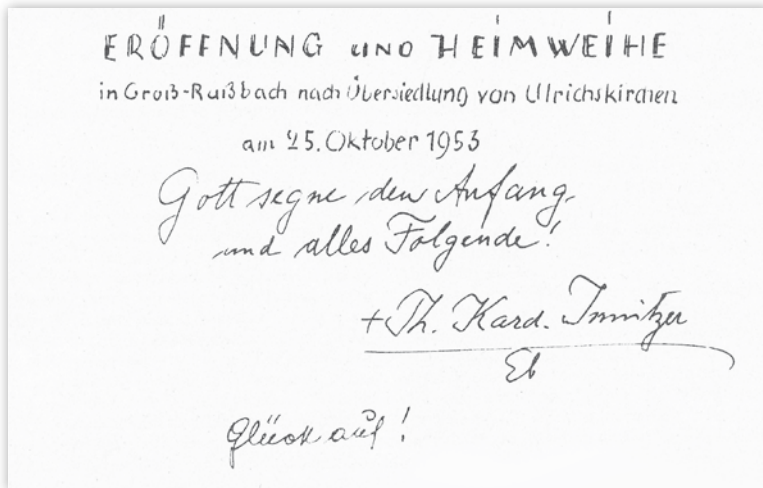 ERÖFFNUNG UND HEIMWEIHE
in Groß-Rußbach nach Übersiedlung von Ulrichskirchen
am 25. Oktober 1953
Gott segne den Anfang
und alles Folgende!
+ Th. Kard. Innitzer
Eb
Glück auf!